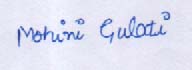 Mohini Gulati